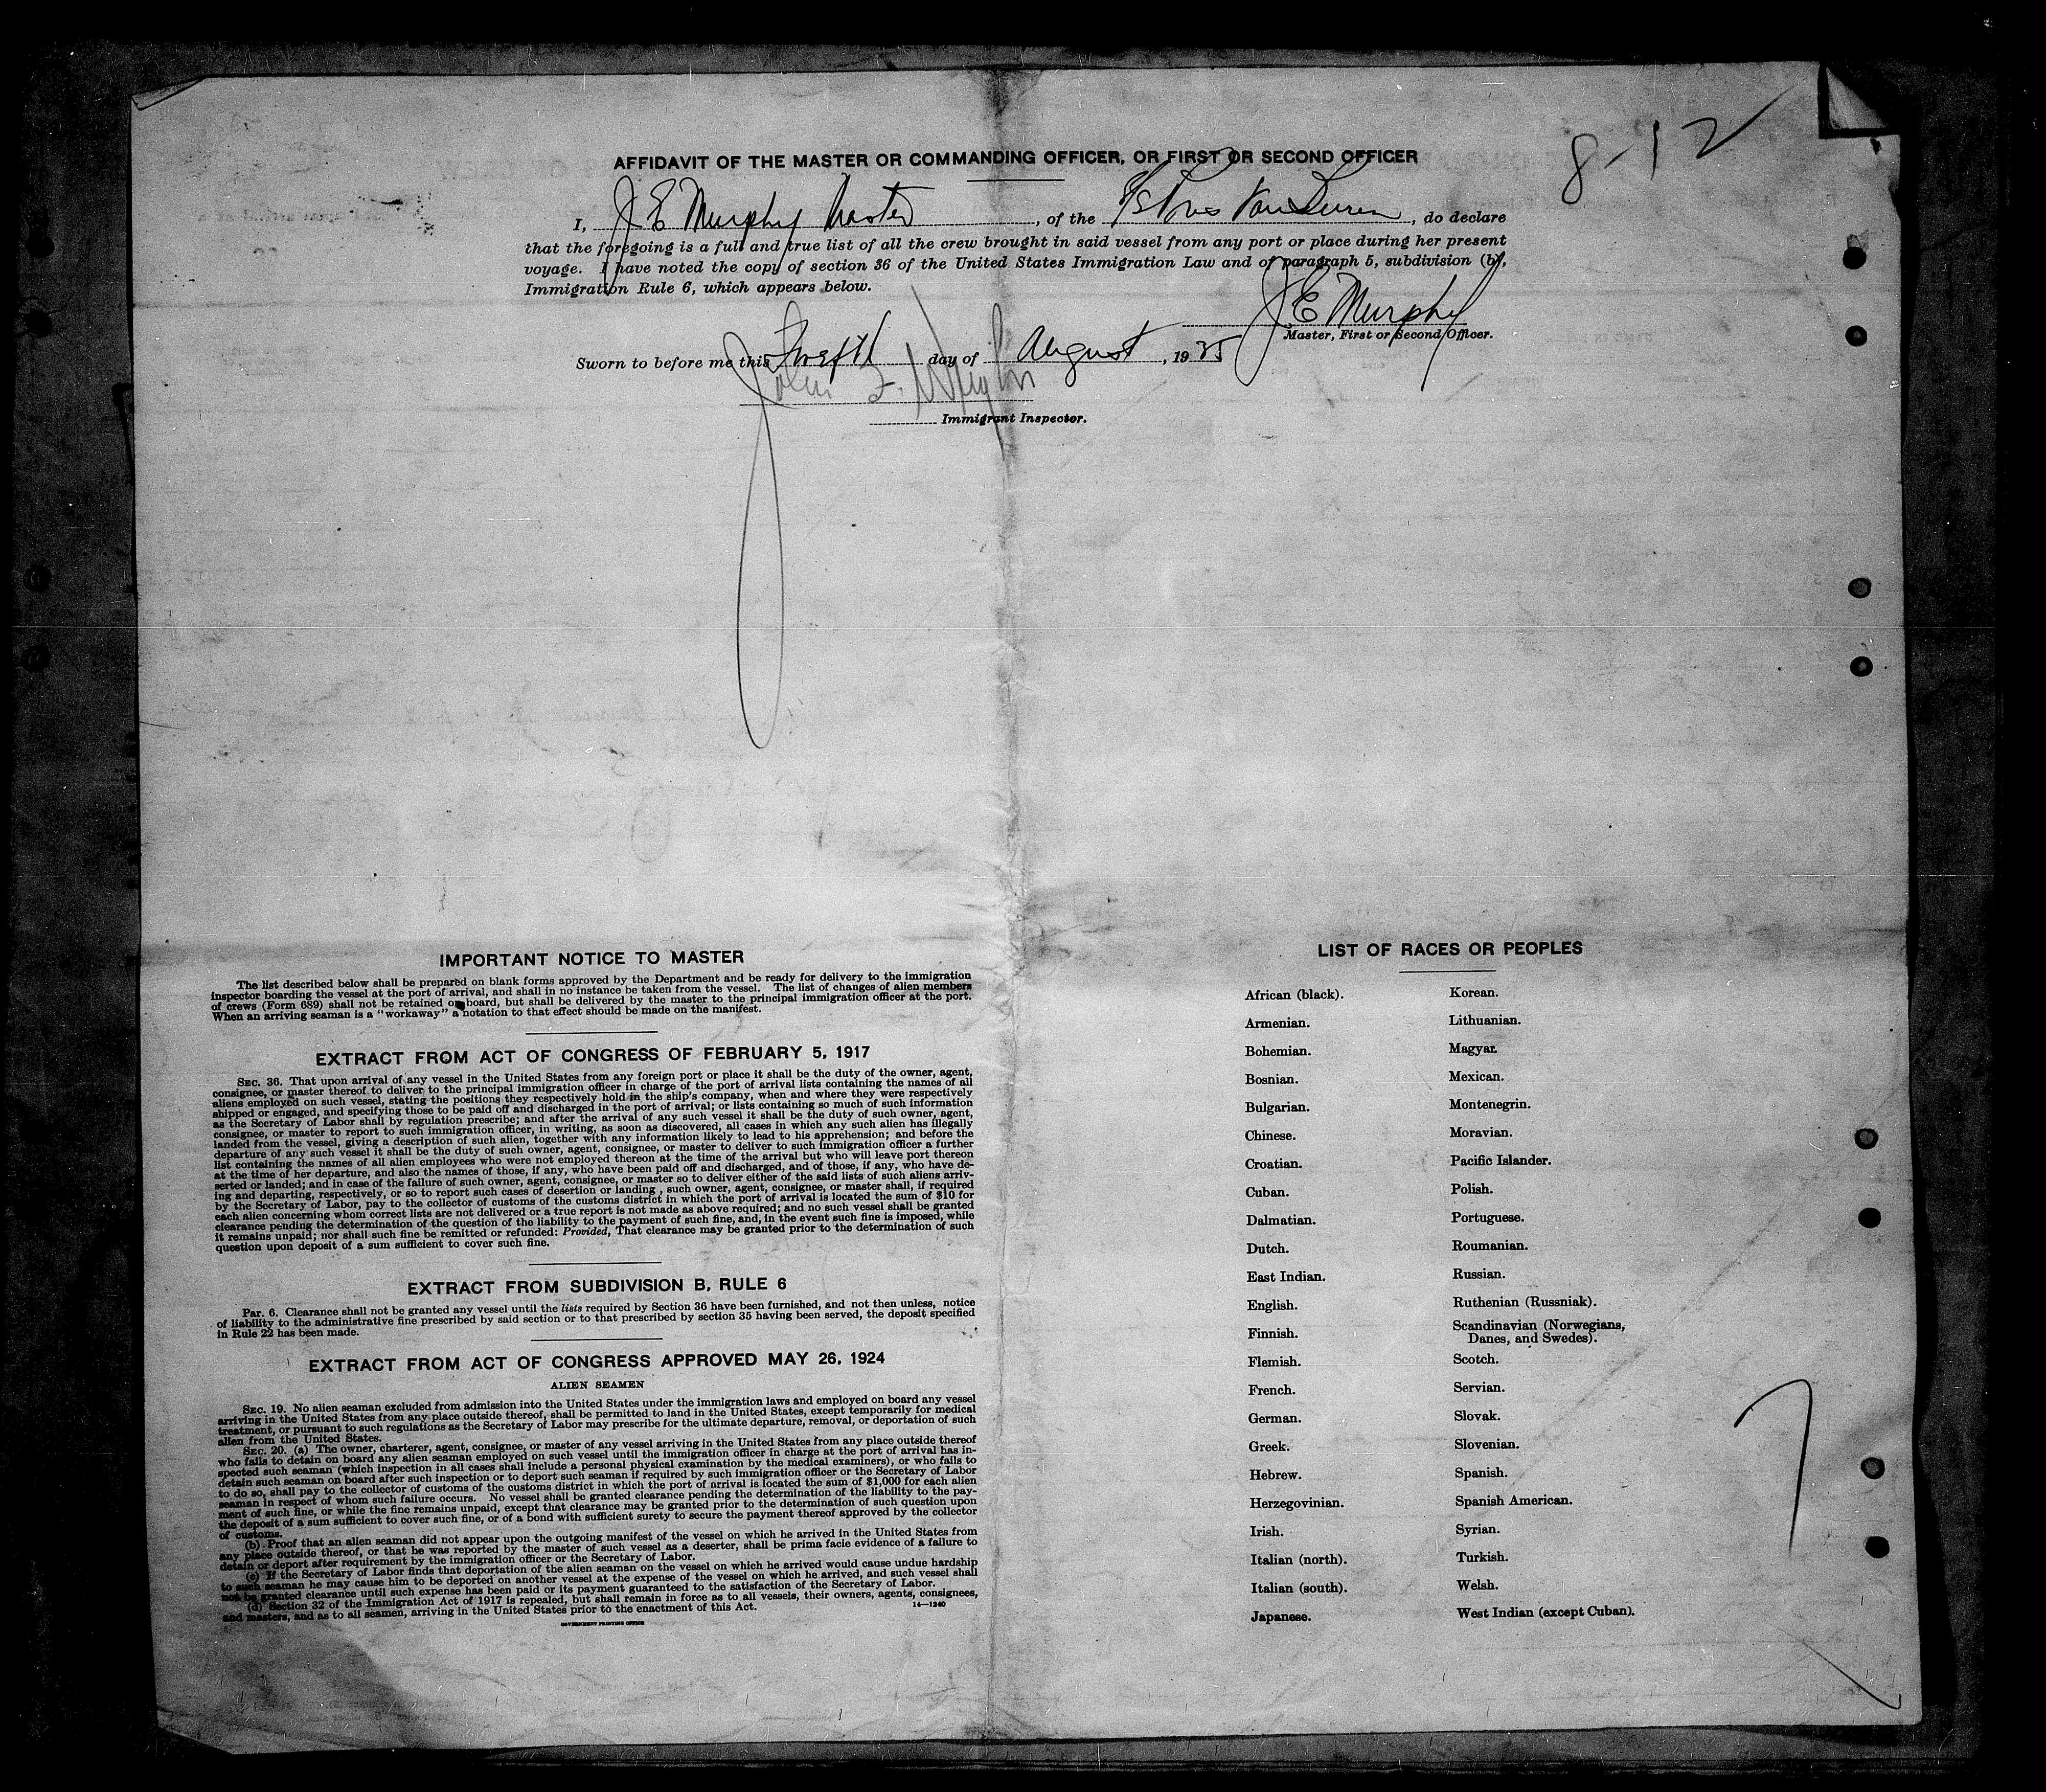 8-12
AFFIDAVIT OF THE MASTER OR COMMANDING OFFICER, OR FIRST OR SECOND OFFICER
I, J E Murphy Master, of the Pres Van Buren, do declare
that the foregoing is a full and true list of all the crew brought in said vessel from any port or place during her present
voyage. I have noted the copy of section 36 of the United States Immigration Law and of paragraph 5, subdivision (b),
Immigration Rule 6, which appears below.
J E Murphy
Master, First or Second Officer.
Sworn to before me this day of August, 1925
John F.
Immigrant Inspector.
IMPORTANT NOTICE TO MASTER
The list described below shall be prepared on blank forms approved by the Department and be ready for delivery to the immigration
inspector boarding the vessel at the port of arrival, and shall in no instance be taken from the vessel. The list of changes of alien members
of crews (Form 689) shall not be retained on board, but shall be delivered by the master to the principal immigration officer at the port.
When an arriving seaman is a "workaway" a notation to that effect should be made on the manifest.
EXTRACT FROM ACT OF CONGRESS OF FEBRUARY 5, 1917
SEC. 36. That upon arrival of any vessel in the United States from any foreign port or place it shall be the duty of the owner, agent,
consignee, or master thereof to deliver to the principal immigration officer in charge of the port of arrival lists containing the names of all
aliens employed on such vessel, stating the positions they respectively hold in the ship's company, when and where they were respectively
shipped or engaged, and specifying those to be paid off and discharged in the port of arrival; or lists containing so much of such information
as the Secretary of Labor shall by regulation prescribe; and after the arrival of any such vessel it shall be the duty of such owner, agent,
consignee, or master to report to such immigration officer, in writing, as soon as discovered, all cases in which any such alien has illegally
landed from the vessel, giving a description of such alien, together with any information likely to lead to his apprehension; and before the
departure of any such vessel it shall be the duty of such owner, agent, consignee, or master to deliver to such immigration officer a further
list containing the names of all alien employees who were not employed thereon at the time of the arrival but who will leave port thereon
at the time of her departure, and also the names of those, if any, who have been paid off and discharged, and of those, if any, who have de-
serted or landed; and in case of the failure of such owner, agent, consignee, or master so to deliver either of the said lists of such aliens arriv-
ing and departing, respectively, or so to report such cases of desertion or landing, such owner, agent, consignee, or master shall, if required
by the Secretary of Labor, pay to the collector of customs of the customs district in which the port of arrival is located the sum of $10 for
each alien concerning whom correct lists are not delivered or a true report is not made as above required; and no such vessel shall be granted
clearance pending the determination of the question of the liability to the payment of such fine, and, in the event such fine is imposed, while
it remains unpaid; nor shall such fine be remitted or refunded: Provided, That clearance may be granted prior to the determination of such
question upon deposit of a sum sufficient to cover such fine.
EXTRACT FROM SUBDIVISION B, RULE 6
Par. 6. Clearance shall not be granted any vessel until the lists required by Section 36 have been furnished, and not then unless, notice
of liability to the administrative fine prescribed by said section or to that prescribed by section 35 having been served, the deposit specified
in Rule 22 has been made.
EXTRACT FROM ACT OF CONGRESS APPROVED MAY 26, 1924
ALIEN SEAMEN
SEC. 19. No alien seaman excluded from admission into the United States under the immigration laws and employed on board any vessel
arriving in the United States from any place outside thereof, shall be permitted to land in the United States, except temporarily for medical
treatment, or pursuant to such regulations as the Secretary of Labor may prescribe for the ultimate departure, removal, or deportation of such
alien from the United States.
SEC. 20. (a) The owner, charterer, agent, consignee, or master of any vessel arriving in the United States from any place outside thereof
who fails to detain on board any alien seaman employed on such vessel until the immigration officer in charge at the port of arrival has in-
spected such seaman (which inspection in all cases shall include a personal physical examination by the medical examiners), or who fails to
detain such seaman on board after such inspection or to deport such seaman if required by such immigration officer or the Secretary of Labor
to do so, shall pay to the collector of customs of the customs district in which the port of arrival is located the sum of $1,000 for each alien
seaman in respect of whom such failure occurs. No vessel shall be granted clearance pending the determination of the liability to the pay-
ment of such fine, or while the fine remains unpaid, except that clearance may be granted prior to the determination of such question upon
the deposit of a sum sufficient to cover such fine, or of a bond with sufficient surety to secure the payment thereof approved by the collector
of customs.
(b) Proof that an alien seaman did not appear upon the outgoing manifest of the vessel on which he arrived in the United States from
any place outside thereof, or that he was reported by the master of such vessel as a deserter, shall be prima facie evidence of a failure to
detain or deport after requirement by the immigration officer or the Secretary of Labor.
(c) If the Secretary of Labor finds that deportation of the alien seaman on the vessel on which he arrived would cause undue hardship
to such seaman he may cause him to be deported on another vessel at the expense of the vessel on which he arrived, and such vessel shall
not be granted clearance until such expense has been paid or its payment guaranteed to the satisfaction of the Secretary of Labor.
(d) Section 32 of the Immigration Act of 1917 is repealed, but shall remain in force as to all vessels, their owners, agents, consignees,
and masters, and as to all seamen, arriving in the United States prior to the enactment of this Act.
14—1240
GOVERNMENT PRINTING OFFICE
LIST OF RACES OR PEOPLES
African (black).
Armenian.
Bohemian.
Bosnian.
Bulgarian.
Chinese.
Croatian.
Cuban.
Dalmatian.
Dutch.
East Indian.
English.
Finnish.
Flemish.
French.
German.
Greek.
Hebrew.
Herzegovinian.
Irish.
Italian (north).
Italian (south).
Japanese.
Korean.
Lithuanian.
Magyar.
Mexican.
Montenegrin.
Moravian.
Pacific Islander.
Polish.
Portuguese.
Roumanian.
Russian.
Ruthenian (Russniak).
Scandinavian (Norwegians,
Danes, and Swedes).
Scotch.
Servian.
Slovak.
Slovenian.
Spanish.
Spanish American.
Syrian.
Turkish.
Welsh.
West Indian (except Cuban).